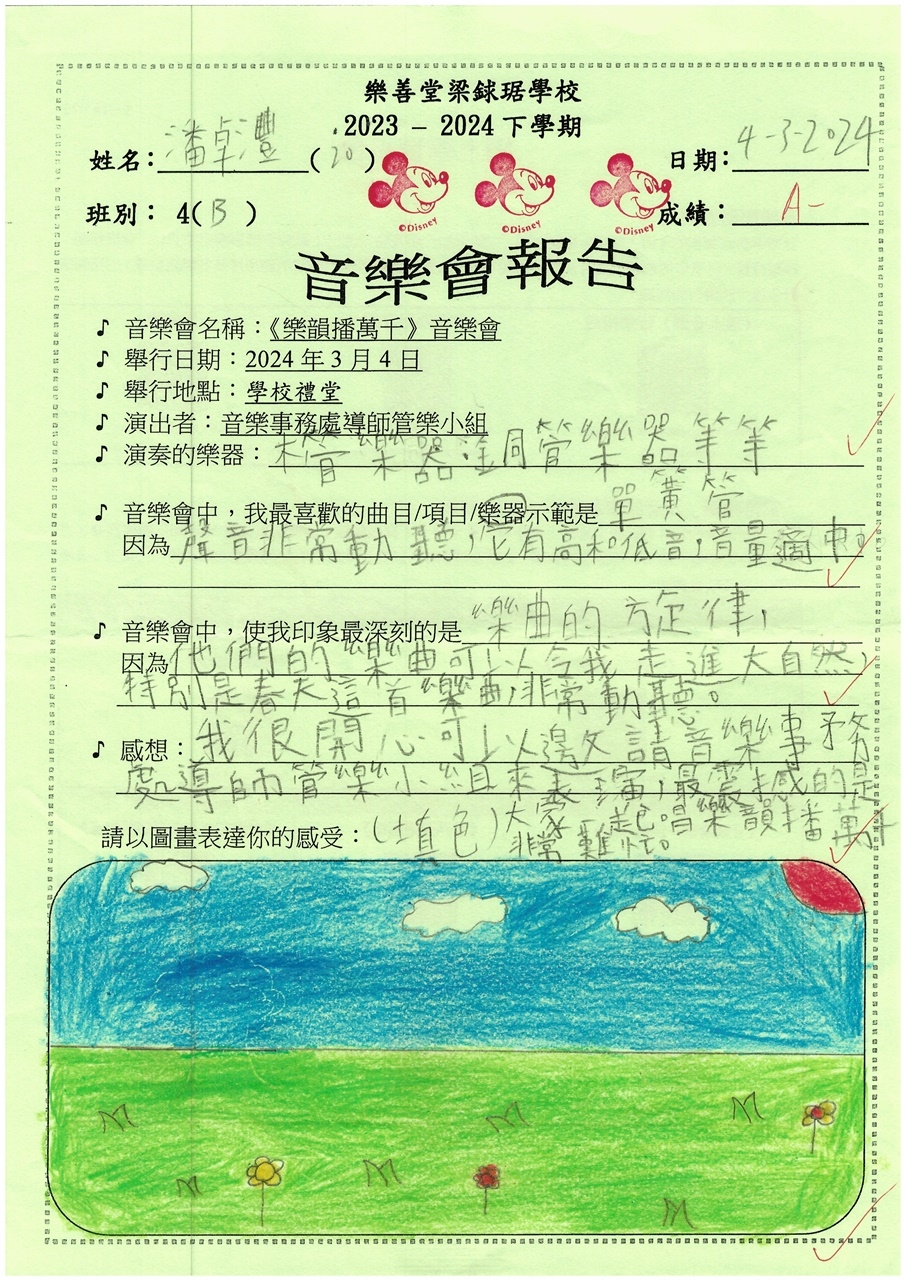 樂善堂梁銶琚學校
2023 - 2024 下學期
姓名：潘卓灃 (20) 日期：4-3-2024
©Disney ©Disney ©Disney
班別： 4( B ) 成績：A-
音樂會報告
♪ 音樂會名稱：《樂韻播萬千》音樂會
♪ 舉行日期：2024 年 3 月 4 日
♪ 舉行地點：學校禮堂
♪ 演出者：音樂事務處導師管樂小組
♪ 演奏的樂器：木管樂器、銅管樂器等等
♪ 音樂會中，我最喜歡的曲目/項目/樂器示範是單簧管
因為聲音非常動聽，它有高和低音，音量適中。
♪ 音樂會中，使我印象最深刻的是樂曲的旋律，
因為他們的樂曲可以令我走進大自然，
特別是春天這首樂曲，非常動聽。
♪ 感想：我很開心可以邀请音樂事務
處導師管樂小組來表演，最震撼的是
大家一起唱樂韻播萬千
請以圖畫表達你的感受：(填色) 非常難忘。